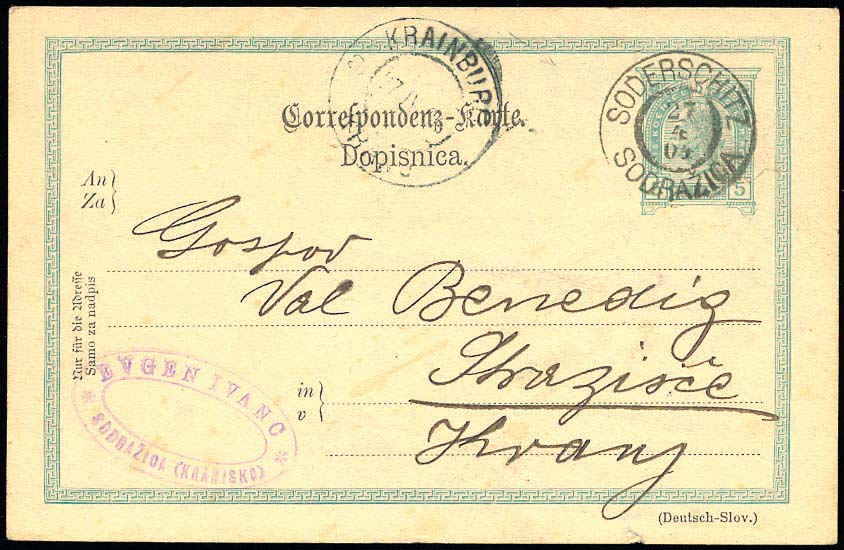 KRAINBURG
KRANJ
SODERSCHITZ
27
4
SODRAŽICA
5
Correspondenz-Karte.
Dopisnica.
An
Za
Gospod
Val Benedig
Stražišče
in
v
Kranj
Nur für die Adresse
Samo za nadpis
EVGEN IVANC
SODRAŽICA (KRANJSKO)
(Deutsch-Slov.)